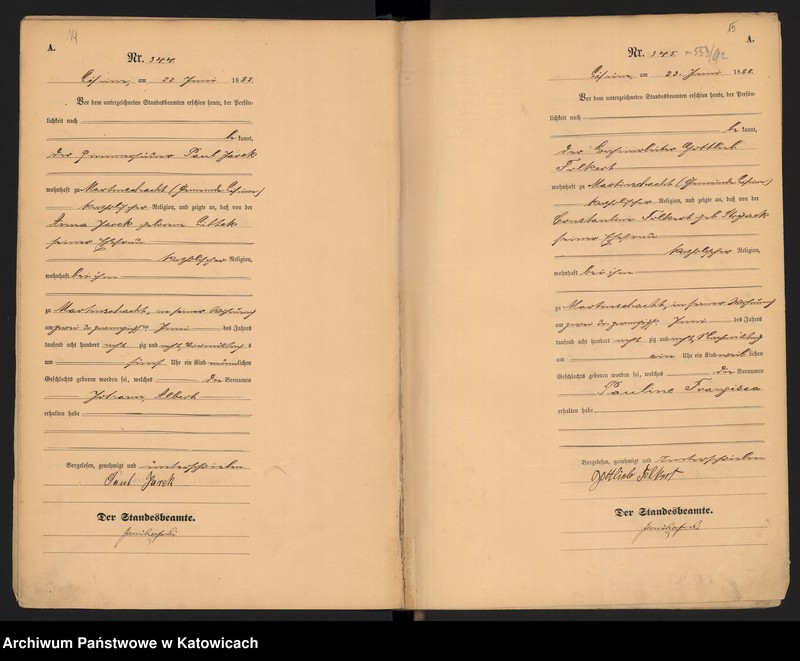 14
A.
Nr. 344
am 22. Juni 1888.
Vor dem unterzeichneten Standesbeamten erschien heute, der Persön-
lichkeit nach
be kannt,
der Paul Jarek
wohnhaft zu Martinschacht (Gemeinde
katholischer Religion, und zeigte an, daß von der
Anna Jarek geborne
seiner Ehefrau
katholischer Religion,
wohnhaft bei ihm
zu Martinschacht, in seiner Wohnung
am zwei und zwanzigsten Juni des Jahres
tausend acht hundert acht zig und acht, Vormittags
um fünf Uhr ein Kind männlichen
Geschlechts geboren worden sei, welches die Vornamen
Johann, Albert
erhalten habe
Vorgelesen, genehmigt und unterschrieben
Paul Jarek
Der Standesbeamte.
15
A.
Nr. 345
am 23. Juni 1888.
Vor dem unterzeichneten Standesbeamten erschien heute, der Persön-
lichkeit nach
be kannt,
der Gottlieb
Folkert
wohnhaft zu Martinschacht (Gemeinde
katholischer Religion, und zeigte an, daß von der
Constantine Folkert geb
seiner Ehefrau
katholischer Religion,
wohnhaft bei ihm
zu Martinschacht, in seiner Wohnung
am zwei und zwanzigsten Juni des Jahres
tausend acht hundert acht zig und acht, Nachmittag
um ein Uhr ein Kind weib lichen
Geschlechts geboren worden sei, welches die Vornamen
Pauline Franzisca
erhalten habe
Vorgelesen, genehmigt und unterschrieben
Gottlieb Folkert
Der Standesbeamte.
Archiwum Państwowe w Katowicach